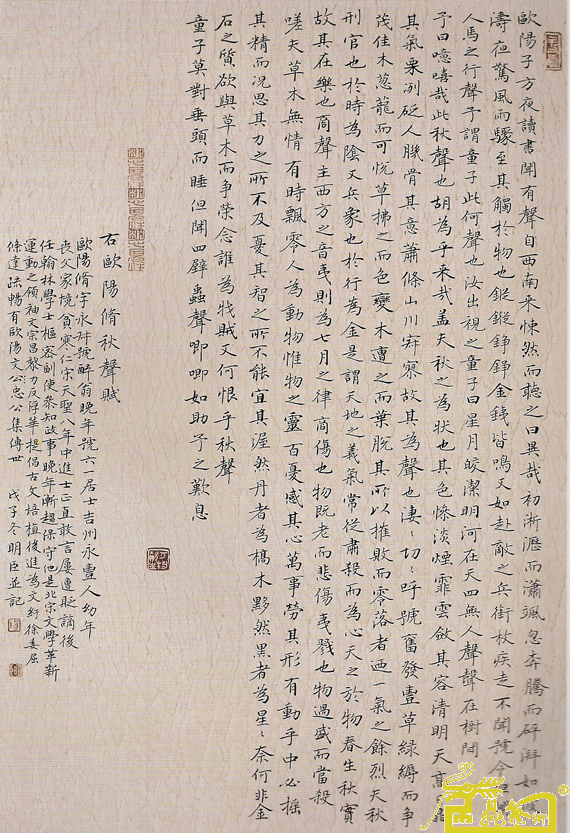 歐陽子方夜讀書聞有聲自西南來悚然而聽之曰異哉初淅瀝而瀟颯忽奔騰而砰湃如
濤夜驚風雨驟至其觸於物也鏦鏦錚錚金鐵皆鳴又如赴敵之兵銜枚疾走不聞號令但
人馬之行聲予謂童子此何聲也汝出視之童子曰星月皎潔明河在天四無人聲聲在樹間
予曰噫嘻哉此秋聲也胡為乎來哉蓋夫秋之為狀也其色慘淡煙霏雲斂其容清明天高
其氣栗冽砭人肌骨其意蕭條山川寂寥故其為聲也淒〻切〻呼號奮發豐草綠縟而爭
茂佳木葱蘢而可悅草拂之而色變木遭之而葉脫其所以摧敗而零落者迺一氣之餘烈夫秋
刑官也於時為陰又兵象也於行為金是謂天地之義氣常從肅殺而為心天之於物春生秋實
故其在樂也商聲主西方之音夷則為七月之律商傷也物既老而悲傷夷戮也物過盛而當殺
嗟夫草木無情有時飄零人為動物惟物之靈百憂感其心萬事勞其形有動乎中必搖
其精而況思其力之所不及憂其智之所不能宜其渥然丹者為槁木黟然黑者為星〻奈何非金
石之質欲與草木而爭榮念誰為戕賊又何恨乎秋聲
童子莫對垂頭而睡但聞四壁蟲聲唧唧如助予之歎息
右歐陽脩秋聲賦
歐陽脩字永叔號醉翁晚年號六一居士吉州永豐人幼年
喪父家境貧寒仁宗天聖八年中進士正直敢言屢遭貶謫後
任翰林學士樞密副使參知政事晚年漸趨保守他是北宋文學革新
運動之領袖文宗昌黎力反浮華提倡古文培植後進為文紆徐委屈
條達疏暢有歐陽文忠公集傳世 戊子冬明臣並記